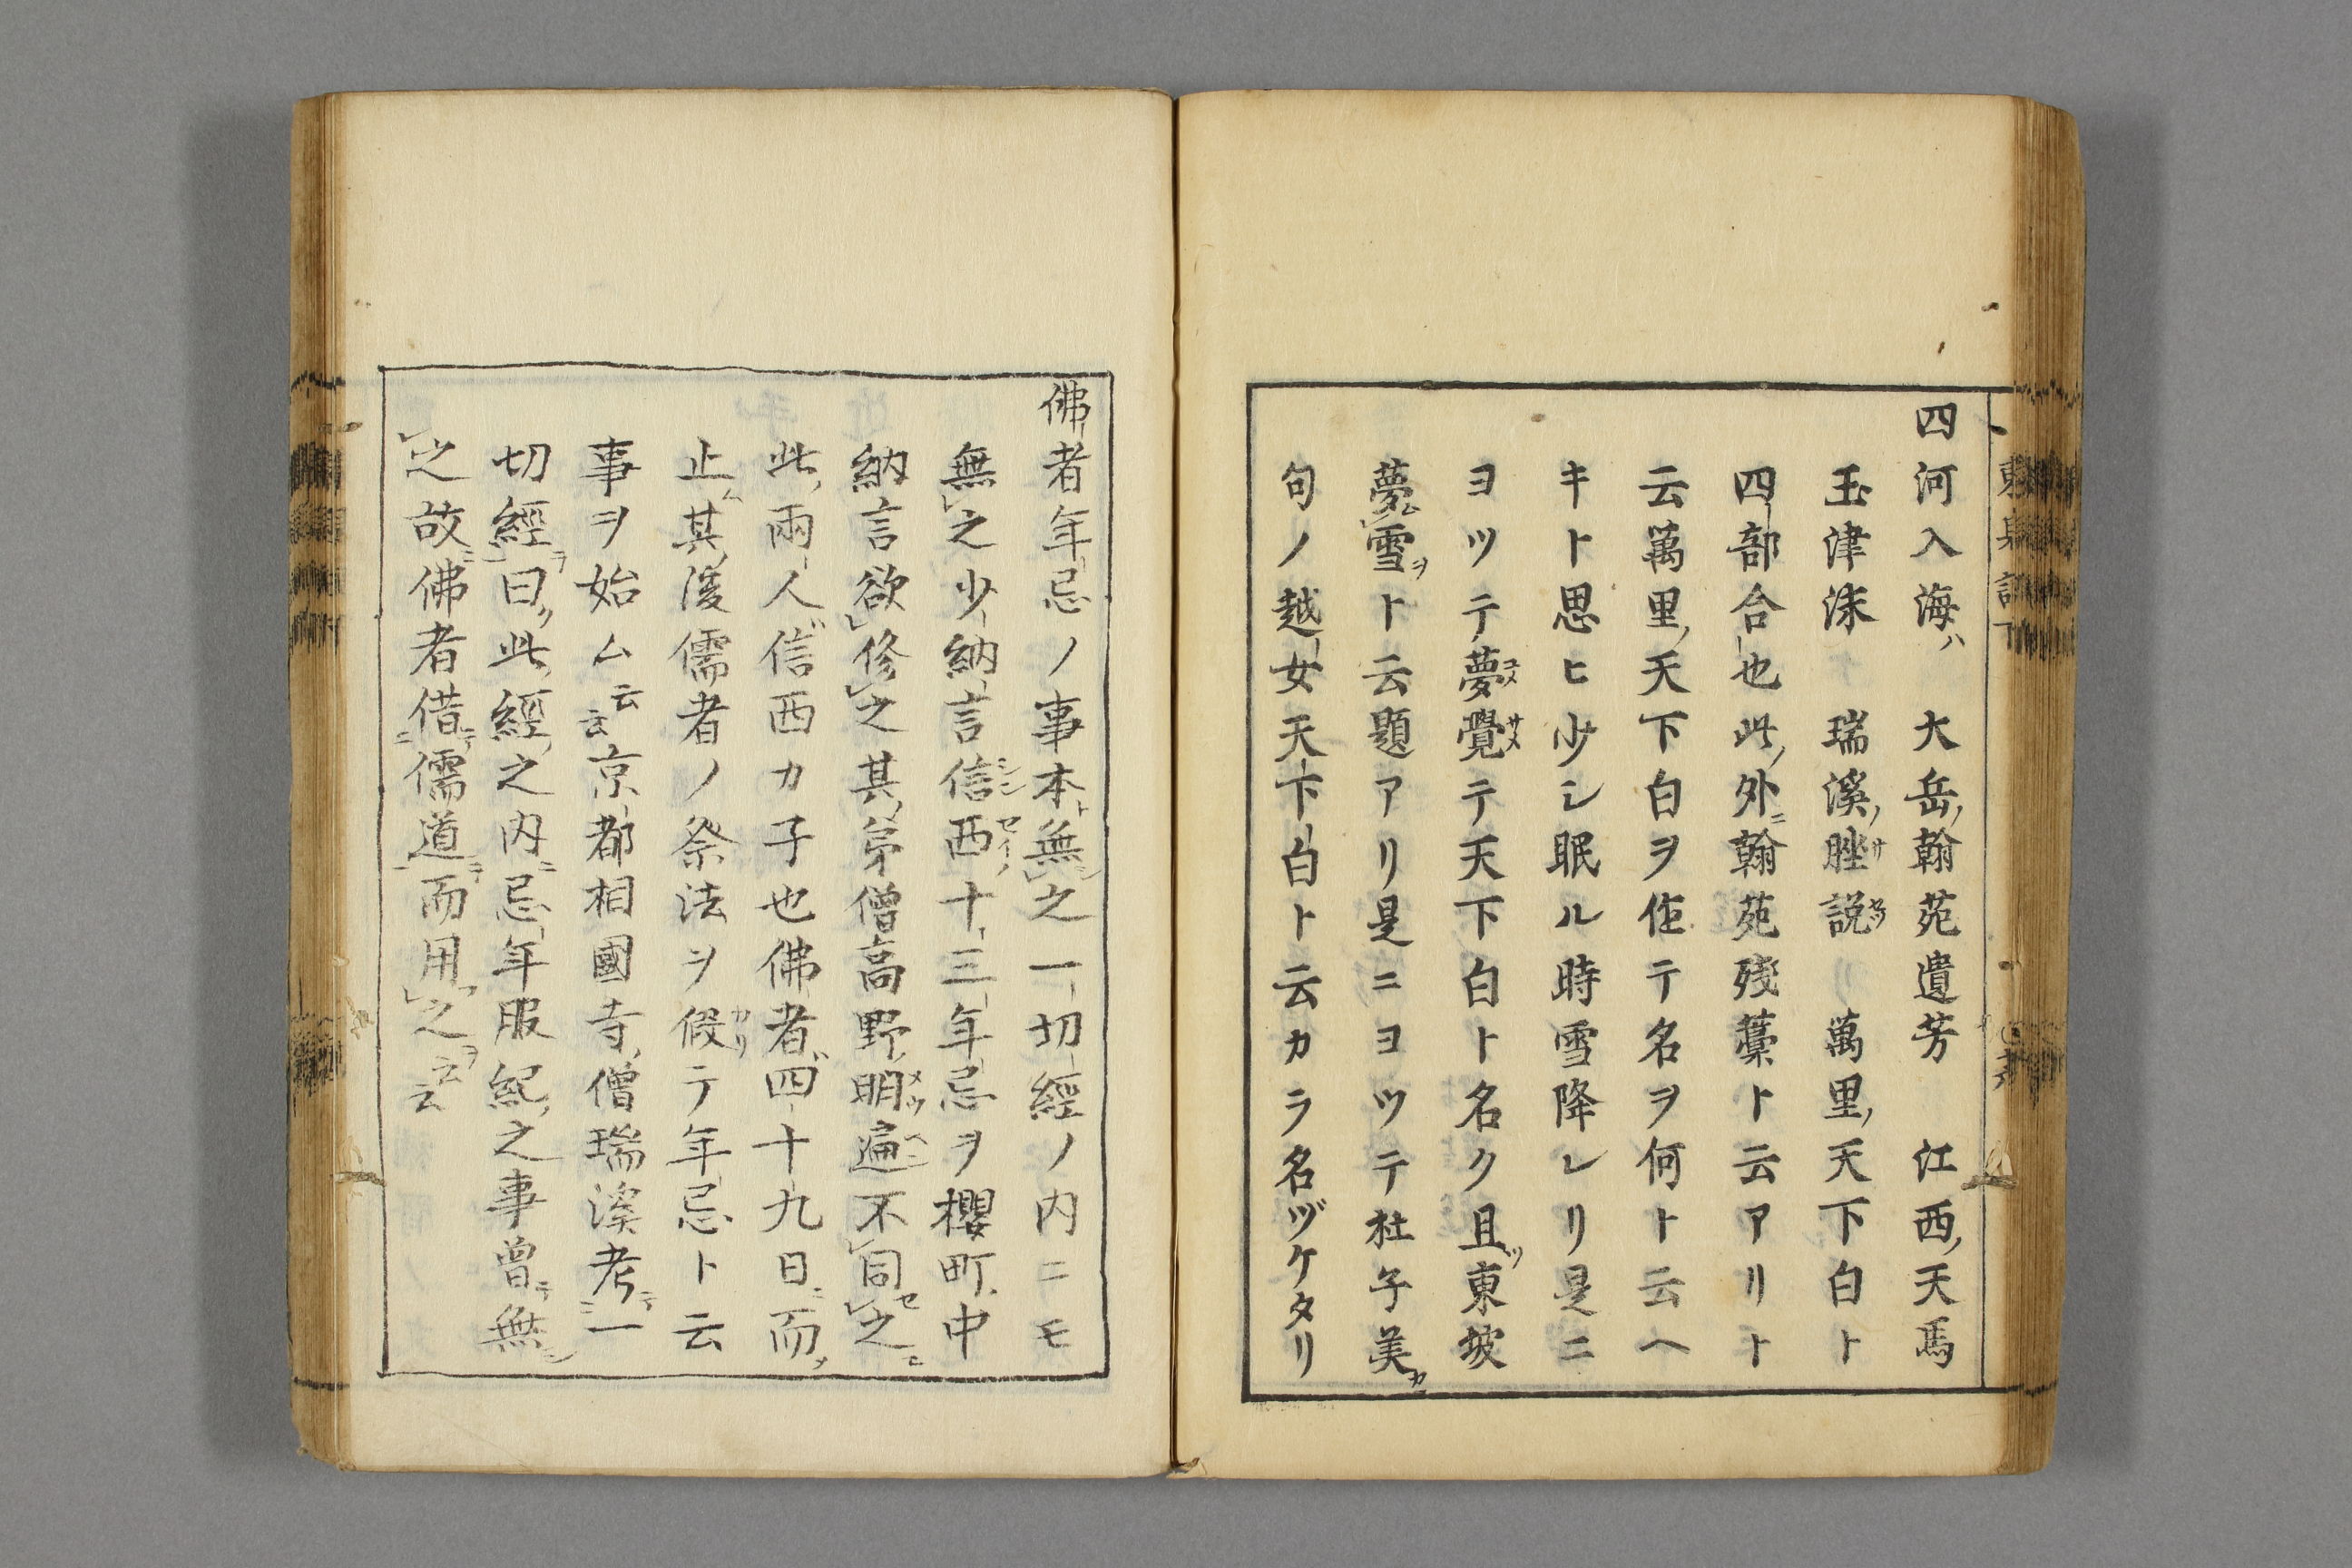 四河入海ハ 大岳ノ翰苑遺芳 江西ノ天馬
玉津沫 瑞溪ノ脞説 萬里ノ天下白ト
四部合也此ノ外ニ翰苑殘藁ト云アリト
云萬里ノ天下白ヲ作テ名ヲ何ト云ヘ
キト思ヒ少シ眠ル時雪降レリ是ニ
ヨツテ夢覺テ天下白ト名ク且ツ東坡
夢雪ヲト云題アリ是ニヨツテ杜子美カ
句ノ越女天下白ト云カラ名ヅケタリ
佛者年忌ノ事本ト無之一切經ノ内ニモ
無之少納言信西ノ十三年忌ヲ櫻町中
納言欲修之其ノ弟僧高野ノ明遍不同之
此ノ兩人ハ信西カ子也佛者ハ四十九日ニ而
止ム其後儒者ノ祭法ヲ假テ年忌ト云
事ヲ始ム云云京都相國寺ノ僧瑞溪考テ一
切經ヲ曰ク此ノ經之内ニ忌年服紀之事曾テ無
之故ニ佛者借テ儒道ヲ而用之ヲ云云